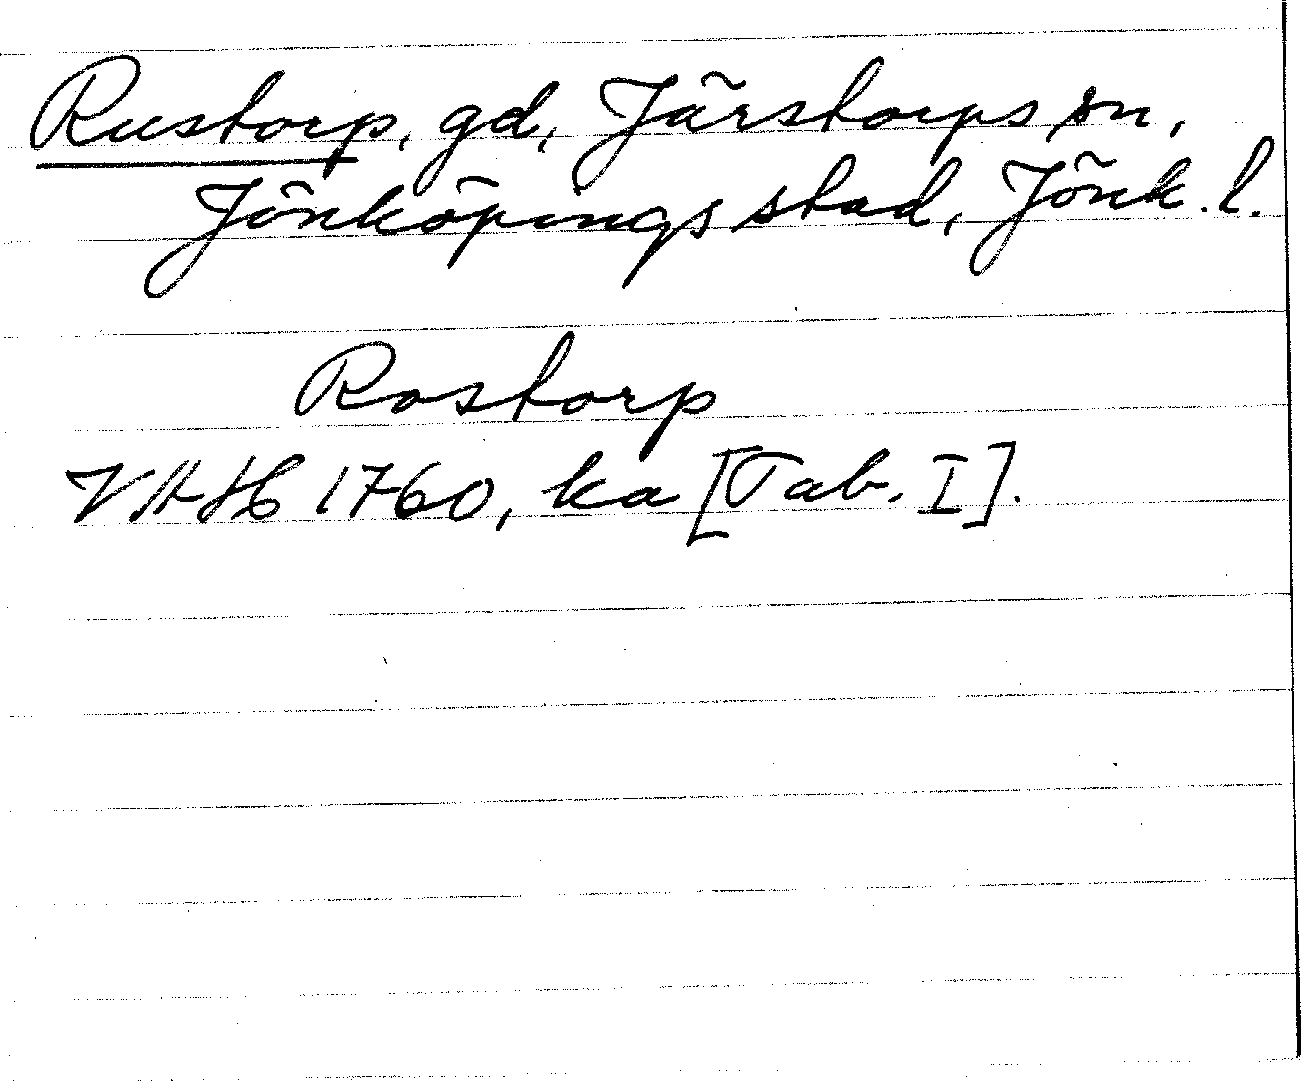 Rustorp, gd, Järstorps sn,
Jönköpings stad, Jönk. l.
Rostorp
VAH 1760, ka [Tab. I].